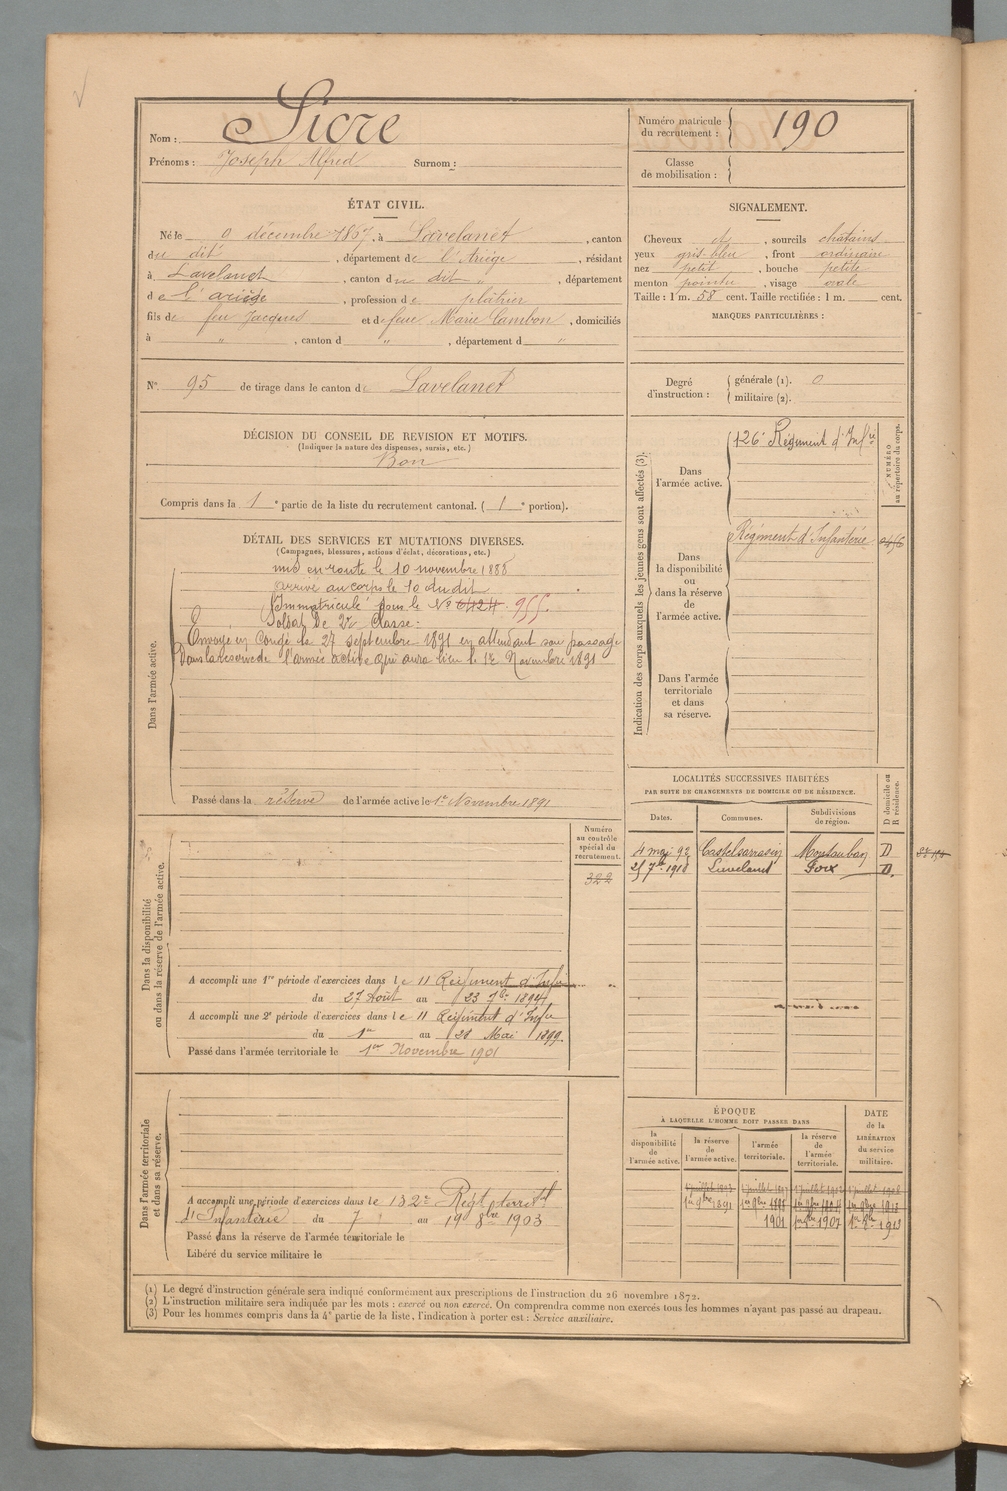 Nom : Sicre
Prénoms : Joseph Alfred Surnom :
Numéro matricule du recrutement : 190
Classe de mobilisation :
ÉTAT CIVIL.
Né le 9 décembre 1867, à Lavelanet, canton
du dit, département de l'Ariège, résidant
à Lavelanet, canton du dit, département
de l'ariège, profession de plâtrier
fils de feu Jacques et de feue Marie Cambon, domiciliés
à " , canton d " , département d "
SIGNALEMENT.
Cheveux et, sourcils chatains
yeux gris-bleu, front ordinaire
nez petit, bouche petite
menton pointu, visage ovale
Taille : 1 m. 58 cent. Taille rectifiée : 1 m. cent.
MARQUES PARTICULIÈRES :
N° 95 de tirage dans le canton de Lavelanet
Degré d'instruction :
générale (1). 0
militaire (2).
DÉCISION DU CONSEIL DE REVISION ET MOTIFS.
(Indiquer la nature des dispenses, sursis, etc.)
Bon
Compris dans la 1e partie de la liste du recrutement cantonal. (1e portion).
DÉTAIL DES SERVICES ET MUTATIONS DIVERSES.
(Campagnes, blessures, actions d'éclat, décorations, etc.)
Dans l'armée active.
mis en route le 10 novembre 1888
arrivé au corps le 10 du dit
Immatriculé sous le N° 6424. 955.
Soldat de 2e Classe.
Envoyé en Congé le 27 septembre 1891 en attendant son passage
dans la réserve de l'armée active qui aura lieu le 1er Novembre 1891
Passé dans la réserve de l'armée active le 1er Novembre 1891
Indication des corps auxquels les jeunes gens sont affectés (3).
NUMÉRO au répertoire du corps.
Dans l'armée active.
126e Régiment d'Infie
Dans la disponibilité ou dans la réserve de l'armée active.
Régiment d'Infanterie
Dans l'armée territoriale et dans sa réserve.
LOCALITÉS SUCCESSIVES HABITÉES
PAR SUITE DE CHANGEMENTS DE DOMICILE OU DE RÉSIDENCE.
D domicile ou R résidence.
Dates. Communes. Subdivisions de région.
4 mai 92 Castelsarrasin Montauban D
25 7bre 1910 Lavelanet Foix D.
Dans la disponibilité ou dans la réserve de l'armée active.
Numéro au contrôle spécial du recrutement.
322
A accompli une 1re période d'exercices dans le 11 Régiment d'Infie
du 27 Août au 23 7bre 1894
A accompli une 2e période d'exercices dans le 11 Régiment d'Infie
du 1er au 28 Mai 1899.
Passé dans l'armée territoriale le 1er Novembre 1901
Dans l'armée territoriale et dans sa réserve.
A accompli une période d'exercices dans le 132e Régt territ
d'Infanterie du 7 au 19 8bre 1903
Passé dans la réserve de l'armée territoriale le
Libéré du service militaire le
ÉPOQUE
À LAQUELLE L'HOMME DOIT PASSER DANS
la disponibilité de l'armée active.
la réserve de l'armée active.
l'armée territoriale.
la réserve de l'armée territoriale.
DATE de la LIBÉRATION du service militaire.
1er 9bre 1891
1901 1907 1913
(1) Le degré d'instruction générale sera indiqué conformément aux prescriptions de l'instruction du 26 novembre 1872.
(2) L'instruction militaire sera indiquée par les mots : exercé ou non exercé. On comprendra comme non exercés tous les hommes n'ayant pas passé au drapeau.
(3) Pour les hommes compris dans la 4e partie de la liste, l'indication à porter est : Service auxiliaire.